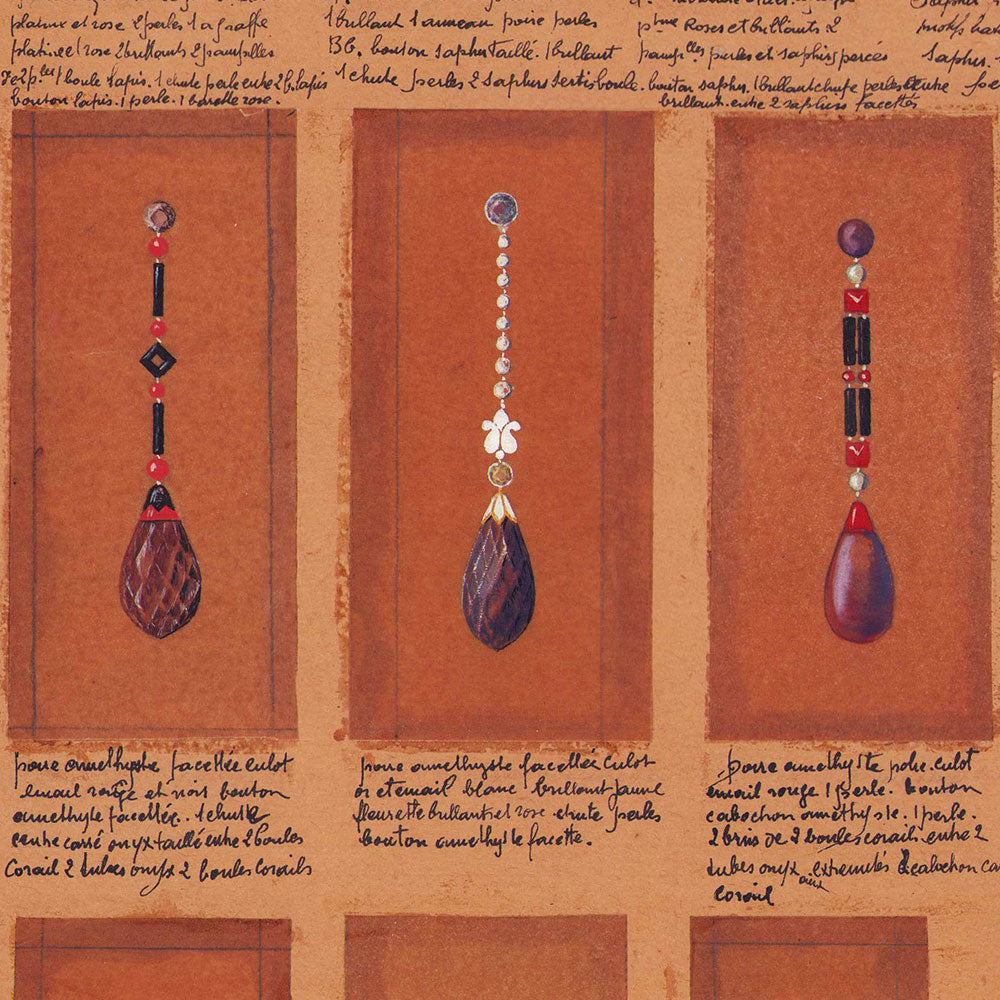 platine et rose 2 perles 1 agraffe
platinee 1 rose 2 brillants 2 pampilles
1 boule lapis. 1 chute perle entre 2 b. lapis
bouton lapis. 1 perle. 1 barette rose.
1 brillant 1 anneau poire perles
BG. bouton saphir taillé. 1 brillant
1 chute perles 2 saphirs sertis boule.
Roses et brillants 2
perles et saphirs percés
bouton saphir. 1 brillant chute perles entre
brillant. entre 2 saphirs facettés
saphir.
poire amethyste facettée culot
email rouge et noir bouton
amethyste facettée. 1 chute
centre carré onyx taillé entre 2 boules
corail 2 tubes onyx 2 boules corails
poire amethyste facettée culot
or et email blanc brillant jaune
fleurette brillant et rose chute perles
bouton amethyste facette.
poire amethyste polie. culot
email rouge 1 perle. bouton
cabochon amethyste. 1 perle.
2 brins de 2 boules corail entre 2
tubes onyx aux extremités 2 cabochon
corail